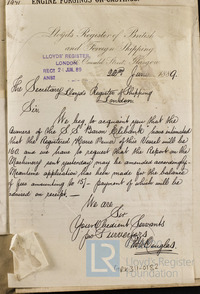 Lloyd's Register of British
and Foreign Shipping
LLOYD'S REGISTER,
LONDON
REC'D 25 JUN. 89
Glasgow
22nd June 1889.
The Secretary
Lloyds Register of Shipping
London
Sir,
We beg to acquaint you that the
Owners of the S.S. "Baron Clebank" have intimated
that the Registered Horse Power of this Vessel will be
160 and we have to request that the Report on the
Machinery sent yesterday may be amended accordingly.
Meantime application has been made for the balance
of fees amounting to 15/- payment of which will be
advised on receipt.
We are
Sir
Your Obedient Servants
For Surveyors
Lloyd's Register
Foundation